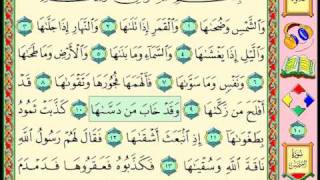 وَٱلشَّمْسِ وَضُحَىٰهَا ١ وَٱلْقَمَرِ إِذَا تَلَىٰهَا ٢ وَٱلنَّهَارِ إِذَا جَلَّىٰهَا ٣
وَٱلَّيْلِ إِذَا يَغْشَىٰهَا ٤ وَٱلسَّمَآءِ وَمَا بَنَىٰهَا ٥ وَٱلْأَرْضِ وَمَا طَحَىٰهَا
٦ وَنَفْسٍ وَمَا سَوَّىٰهَا ٧ فَأَلْهَمَهَا فُجُورَهَا وَتَقْوَىٰهَا ٨ قَدْ
أَفْلَحَ مَن زَكَّىٰهَا ٩ وَقَدْ خَابَ مَن دَسَّىٰهَا ١٠ كَذَّبَتْ ثَمُودُ
بِطَغْوَىٰهَآ ١١ إِذِ ٱنۢبَعَثَ أَشْقَىٰهَا ١٢ فَقَالَ لَهُمْ رَسُولُ ٱللَّهِ
نَاقَةَ ٱللَّهِ وَسُقْيَٰهَا ١٣ فَكَذَّبُوهُ فَعَقَرُوهَا فَدَمْدَمَ
١٠
سورة
الشمس